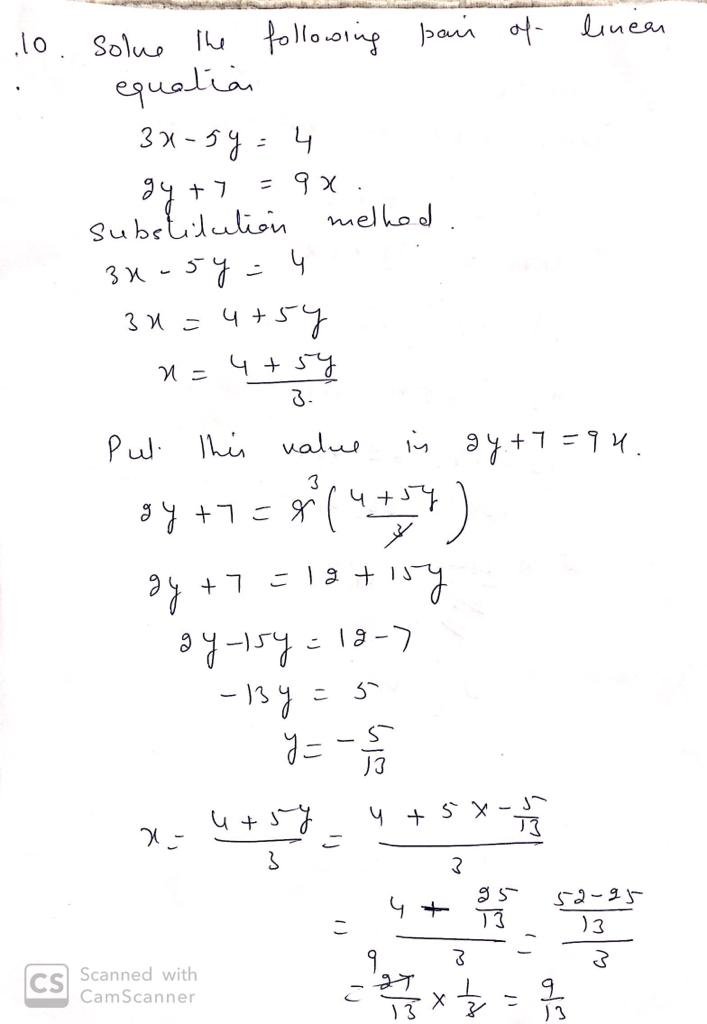 10. Solve the following pair of linear
equation
3x - 5y = 4
2y + 7 = 9x.
Substitution method.
3x - 5y = 4
3x = 4 + 5y
x = (4 + 5y)/3.
Put this value in 2y + 7 = 9x.
2y + 7 = 9³((4 + 5y)/3)
2y + 7 = 12 + 15y
2y - 15y = 12 - 7
-13y = 5
y = -5/13
x = (4 + 5y)/3 = (4 + 5 × -5/13)/3
= (4 + 25/13)/3 = ((52 - 25)/13)/3
= 27/13 9 × 1/3 = 9/13
CS Scanned with
CamScanner